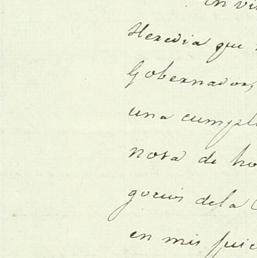 en vi
Heredia que
Gobernador,
una cumpl
nota de ho
gocios dela
en mis